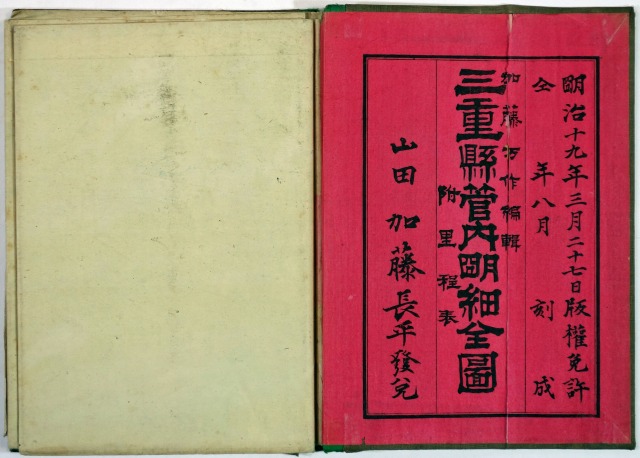 明治十九年三月二十七日版權免許
仝年八月刻成
加藤万作編輯
三重縣管内明細全圖
附里程表
山田 加藤長平發兌